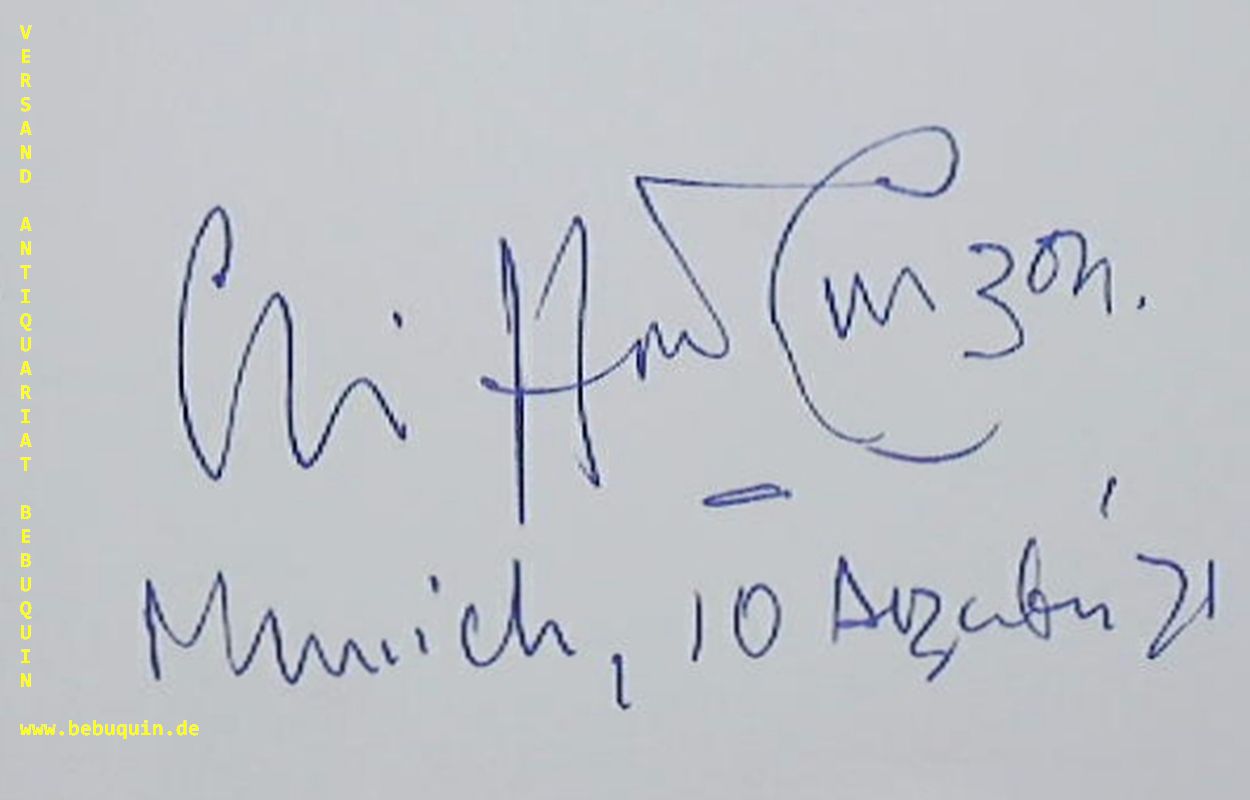 VERSAND ANTIQUARIAT BEBUQUIN
Clifford Curzon.
Munich, 10 Dezember '71
www.bebuquin.de